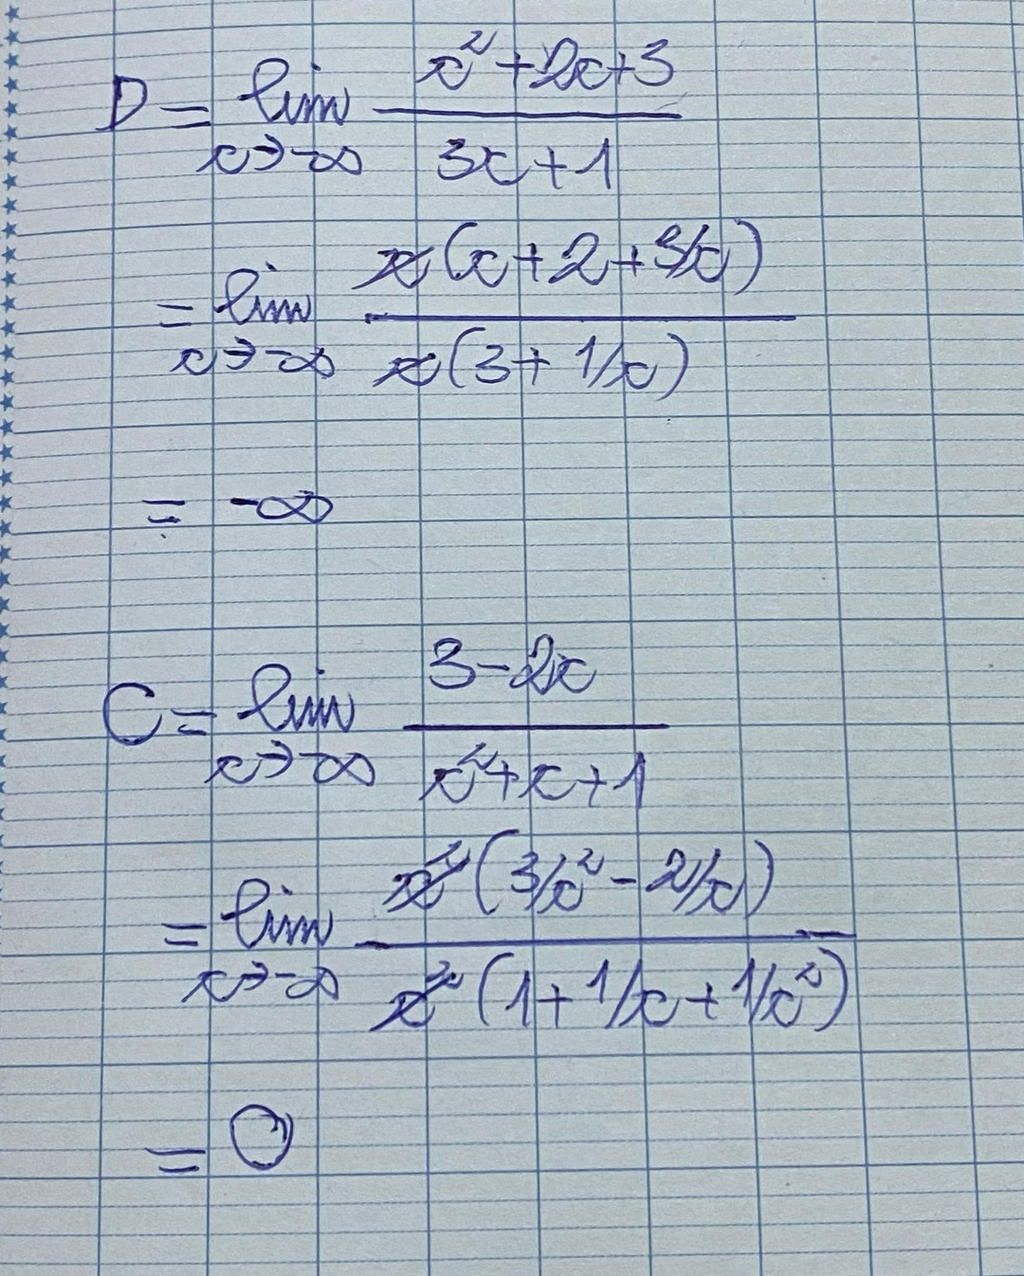 D = lim x→-∞ (x² + 2x + 3)/(3x + 1)
= lim x→-∞ x(x + 2 + 3/x)/x(3 + 1/x)
= -∞
C = lim x→-∞ (3 - 2x)/(x² + x + 1)
= lim x→-∞ x²(3/x² - 2/x)/x²(1 + 1/x + 1/x²)
= 0